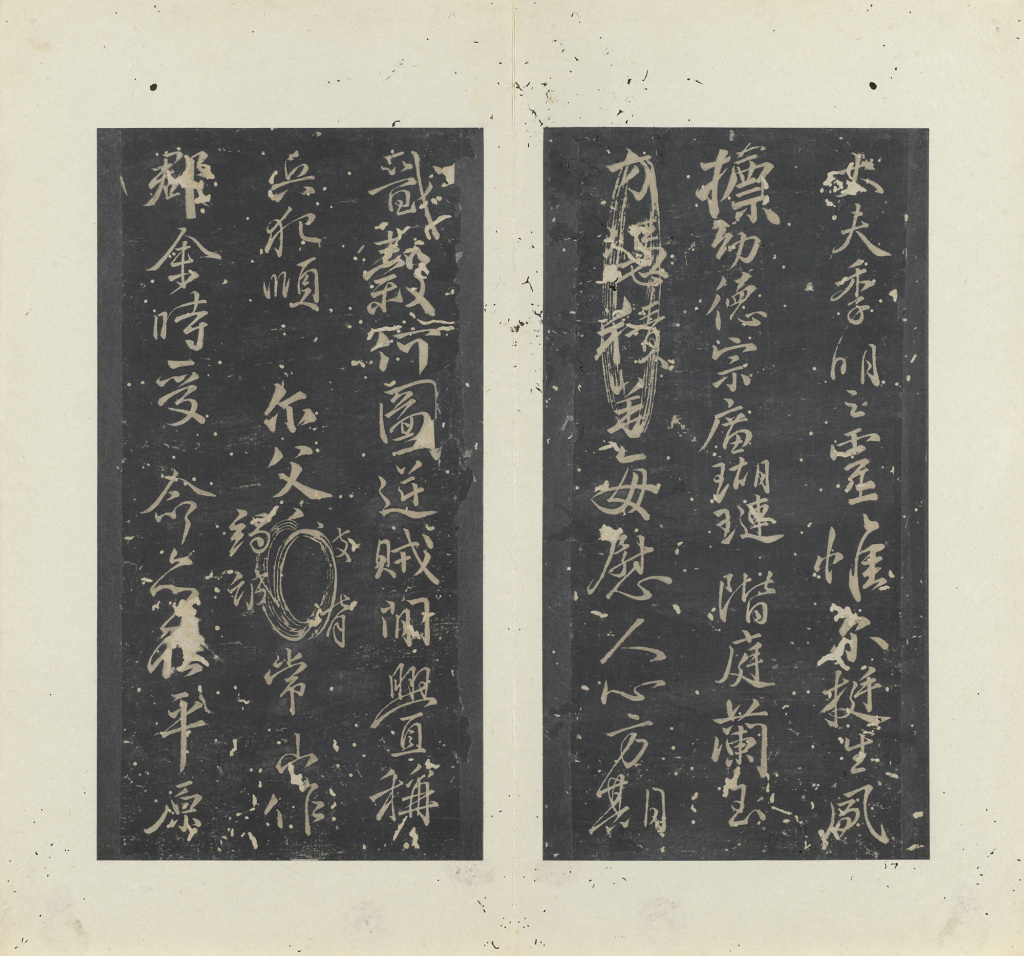 大夫季明之靈惟尔挺生夙
摽幼德宗廟瑚璉階庭蘭玉
方憑積善每慰人心方期
戩穀何圖逆賊閒釁稱
兵犯順尔父被脅竭誠常山作
郡余時受命亦在平原